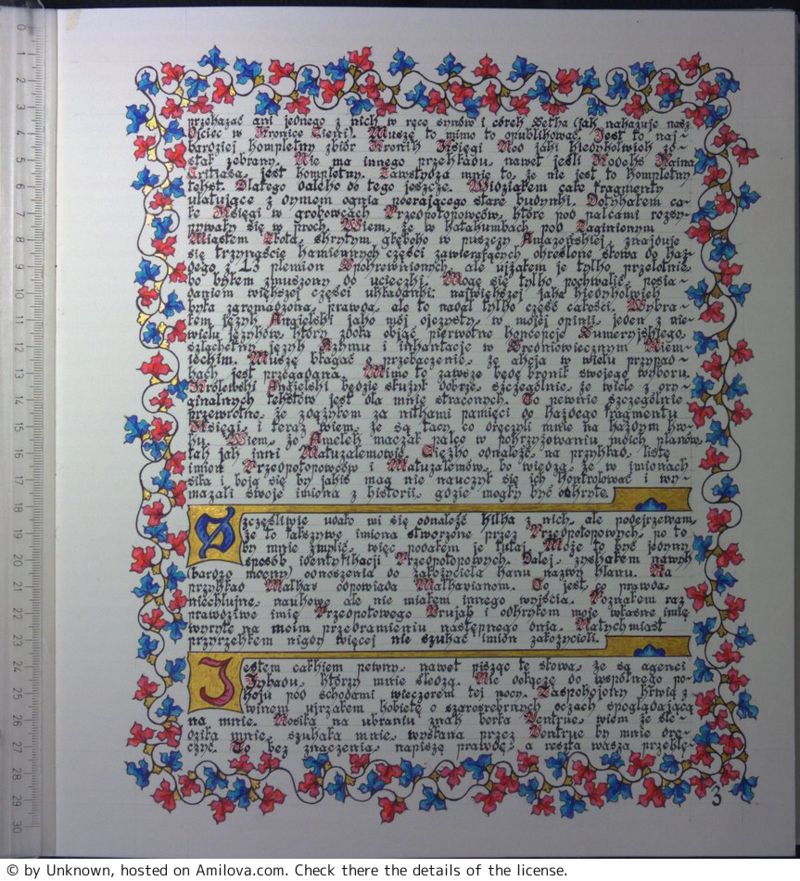 przekazać ani jednego z nich w ręce synów i córek Setha (jak nakazuje nasz
Ojciec w Kronice Cieni). Muszę to mimo to opublikować. Jest to naj-
bardziej kompletny zbiór Kronik Księgi Nod jaki kiedykolwiek zo-
stał zebrany. Nie ma innego przekładu, nawet jeśli Kodeks Kaina
Critiasa, jest kompletny. Zawstydza mnie to, że nie jest to kompletny
tekst. Dlatego daleko do tego jeszcze. Widziałem całe fragmenty
ulatujące z dymem ognia pożerającego stare budynki. Dotykałem ca-
łe Księgi w grobowcach Przedpotopowców, które pod palcami rozsy-
pywały się w proch. Wiem, że w katakumbach pod Zaginionym
Miastem Złota, skrytym głęboko w puszczy Amazońskiej, znajduje
się trzynaście kamiennych części zawierających określone słowa do każ-
dego z 13 plemion Spokrewnionych, ale ujżałem je tylko przelotnie
bo byłem zmuszony do ucieczki. Mogę się tylko pochwalić, posia-
daniem większej części układanki: największej jaka kiedykolwiek
była zgromadzona, prawda, ale to nadal tylko część całości. Wybra-
łem język Angielski jako mój ojczysty, w mojej opinii, jeden z nie-
wielu języków, który zdoła objąć pierwotne koncepcje Sumeryjskiego,
szlachetny język Azhmu i inkantacje w Średniowiecznym Niem-
ieckim. Muszę błagać o przebaczenie, że akcja w wielu przypad-
kach jest przegadana. Mimo to zawsze będę bronił swojego wyboru.
Królewski Angielski będzie służył dobrze, szczególnie, że wiele z ory-
ginalnych tekstów jest dla mnie straconych. To pewnie szczególnie
przewrotne, że zdążyłem za nitkami pamięci do każdego fragmentu
Księgi, i teraz wiem, że są tacy co dręczyli mnie na każdym kro-
ku. Wiem, że Amelek maczał palce w pokrzyżowaniu moich planów
tak jak inni Matuzalemowie. Ciężko odnaleźć na przykład, listę
imion Przedpotopowców i Matuzalemów, bo wiedzą, że w imionach
siła i boją się by jakiś mag nie nauczył się ich kontrolować i wy-
mazali swoje imiona z historii, gdzie mogły być odkryte.
Szczęśliwie udało mi się odnaleźć kilka z nich, ale podejrzewam,
że to fałszywe imiona stworzone przez Przedpotopowych, po to
by mnie zmylić, więc podałem je tutaj. Może to być jedyny
sposób identyfikacji Przedpotopowych. Dalej, zyskałem nawyk
(bardzo mocny) odnoszenia do założyciela klanu nazwy klanu. Na
przykład Malkav odpowiada Malkavianom. To jest, to prawda,
niechlujne, naukowe ale nie miałem innego wyjścia. Poznałem raz
prawdziwe imię Przedpotopowego Brujah i odkryłem moje własne imię
wyryte na moim przedramieniu następnego dnia. Natychmiast
przyrzekłem nigdy więcej nie szukać imion założycieli.
Jestem całkiem pewny, nawet pisząc te słowa, że są agenci
Jyhadu, którzy mnie śledzą. Nie dołączę do wspólnego po-
koju pod schodami wieczorem tej nocy. Zaspokojony krwią z
winem ujrzałem kobietę o szarosrebrnych oczach spoglądającą
na mnie. Nosiła na ubraniu znak berła Ventrue, wiem że śle-
dziła mnie, szukała mnie, wysłana przez Ventrue by mnie drę-
czyć. To bez znaczenia, napiszę prawdę, a reszta wasza przeklę-
3
0 1 2 3 4 5 6 7 8 9 10 11 12 13 14 15 16 17 18 19 20 21 22 23 24 25 26 27 28 29 30
© by Unknown, hosted on Amilova.com. Check there the details of the license.